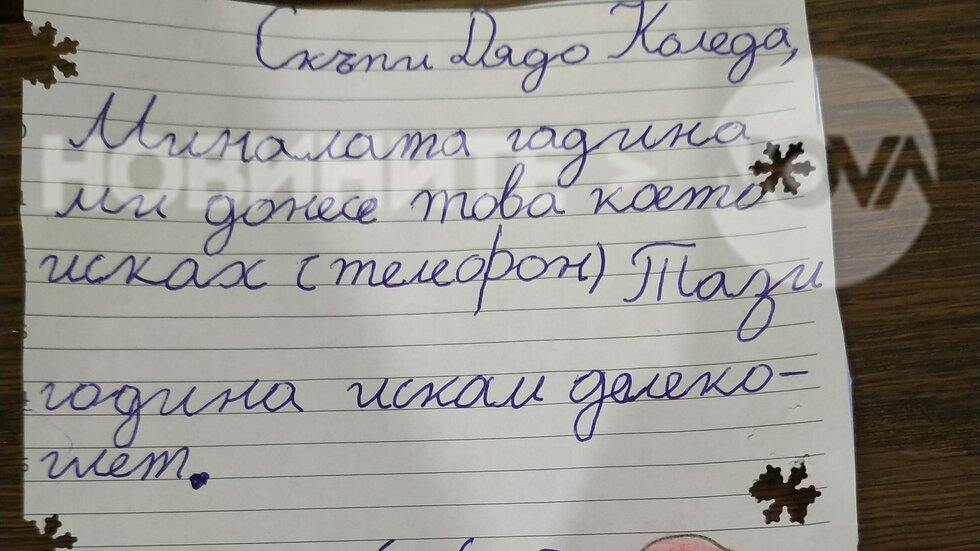 Скъпи Дядо Коледа,
Миналата година
ми донесе това което
исках (телефон) Тази
година искам далеко-
глет.
НОВИНИТЕ